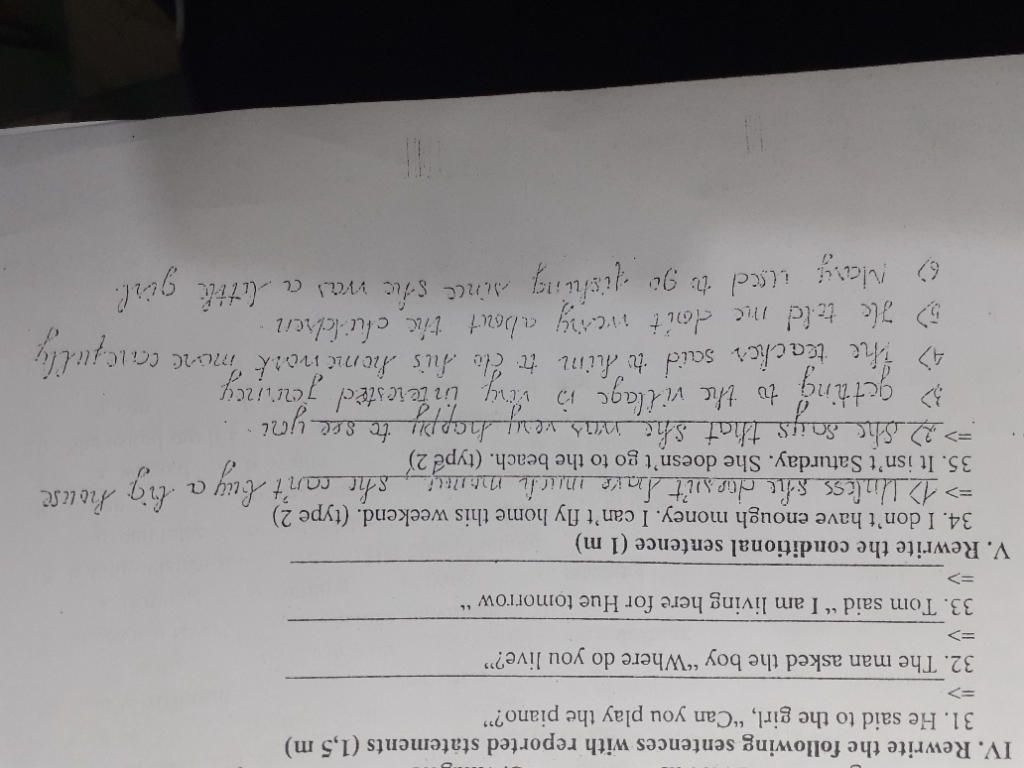 IV. Rewrite the following sentences with reported statements (1,5 m)
31. He said to the girl, “Can you play the piano?”
=>
32. The man asked the boy “Where do you live?”
=>
33. Tom said “ I am living here for Hue tomorrow “
=>
V. Rewrite the conditional sentence (1 m)
34. I don't have enough money. I can't fly home this weekend. (type 2)
=> 1) Unless she doesn't have much money, she can't buy a big house
35. It isn't Saturday. She doesn't go to the beach. (type 2)
=> 2) She says that she was very happy to see you.
3) getting to the village is very interested
4) The teacher said to him to do his homework more carefully
5) He told me don't worry about the children.
6) Mary used to go fishing since she was a little girl.